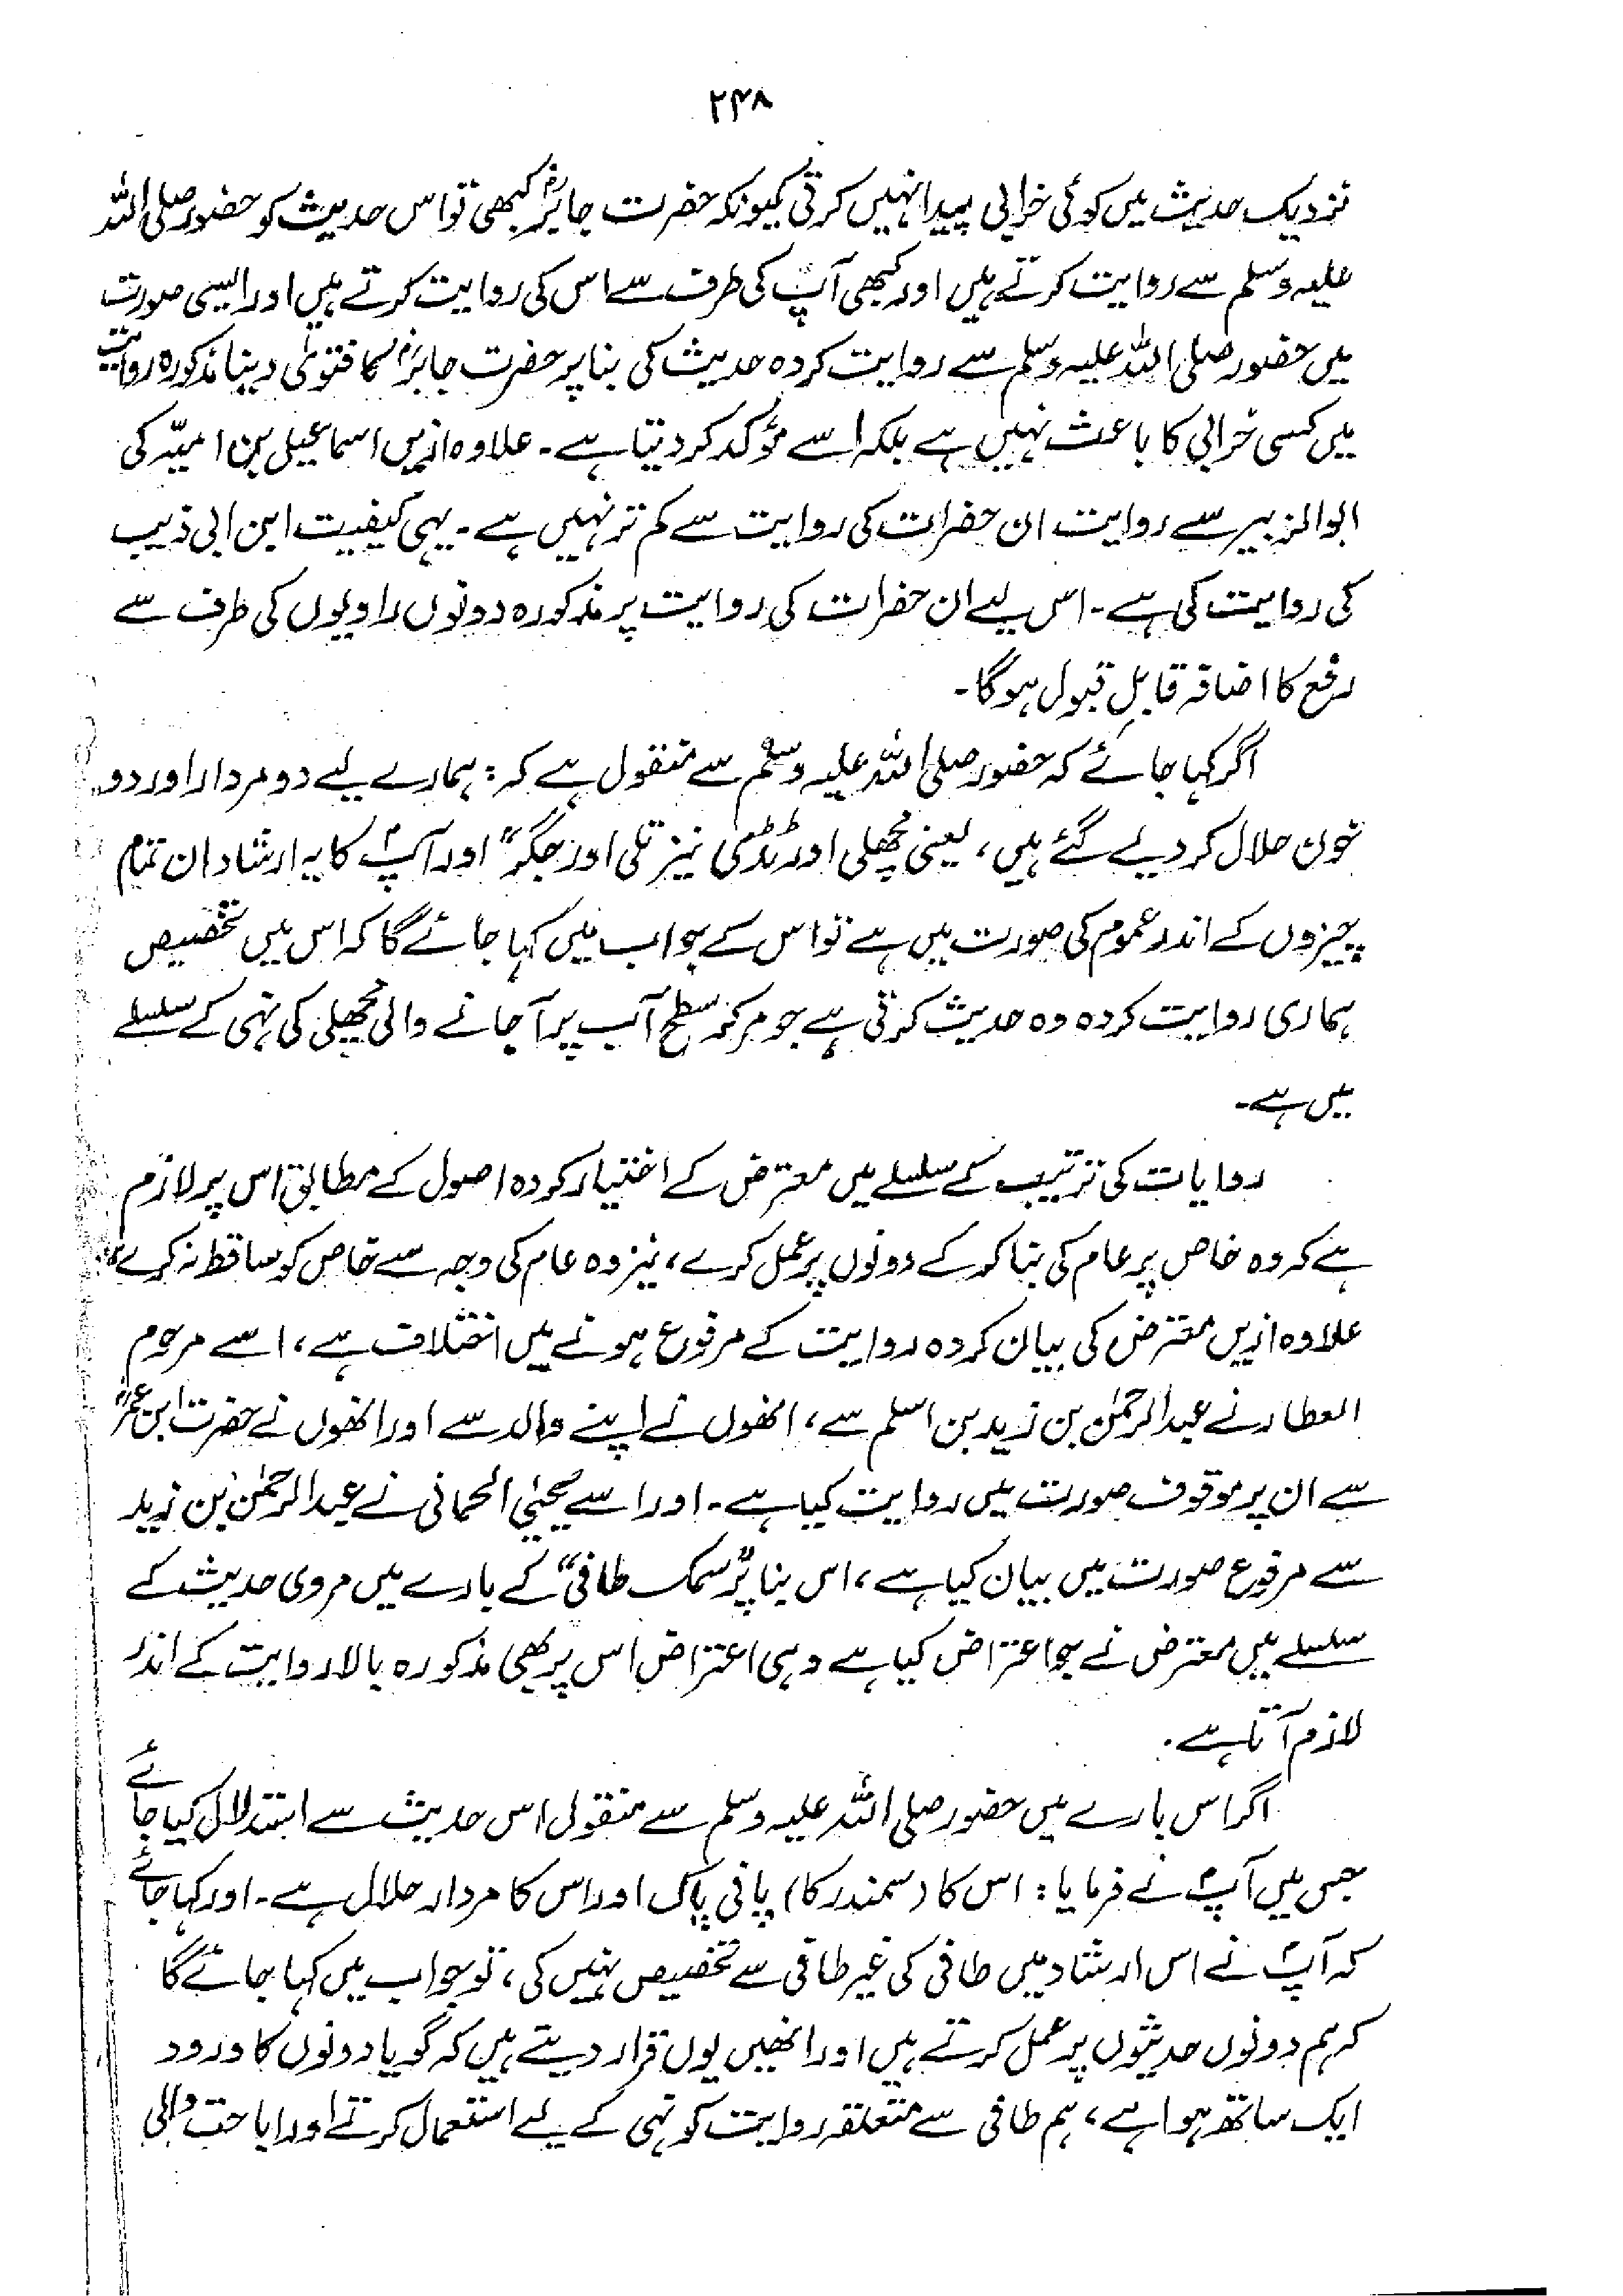 ۲۴۸
نزدیک حدیث میں کوئی خرابی پیدا نہیں کرتی کیونکہ حضرت جابرؓ کبھی تو اس حدیث کو حضور صلی اللہ
علیہ وسلم سے روایت کرتے ہیں اور کبھی آپؐ کی طرف سے اس کی روایت کرتے ہیں اور ایسی صورت
میں حضور صلی اللہ علیہ وسلم سے روایت کردہ حدیث کی بنا پر حضرت جابرؓ کا فتویٰ دینا مذکورہ روایت
میں کسی خرابی کا باعث نہیں ہے بلکہ اسے مؤکد کر دیتا ہے۔ علاوہ ازیں اسماعیل بن امیّہ کی
ابوالزبیر سے روایت ان حضرات کی روایت سے کم تر نہیں ہے۔ یہی کیفیت ابن ابی ذیب
کی روایت کی ہے۔ اس لیے ان حضرات کی روایت پر مذکورہ دونوں راویوں کی طرف سے
رفع کا اضافہ قابلِ قبول ہوگا۔
اگر کہا جائے کہ حضور صلی اللہ علیہ وسلم سے منقول ہے کہ: ہمارے لیے دو مردار اور دو
خون حلال کر دیے گئے ہیں، یعنی مچھلی اور ٹڈی نیز تلی اور جگر" اور آپؐ کا یہ ارشاد ان تمام
چیزوں کے اندر عموم کی صورت میں ہے تو اس کے جواب میں کہا جائے گا کہ اس میں تخصیص
ہماری روایت کردہ وہ حدیث کرتی ہے جو مرکر سطح آب پر آجانے والی مچھلی کی نہی کے سلسلے
میں ہے۔
روایات کی ترتیب کے سلسلے میں معترض کے اختیار کردہ اصول کے مطابق اس پر لازم
ہے کہ وہ خاص پر عام کی بنا کر کے دونوں پر عمل کرے، نیز وہ عام کی وجہ سے خاص کو ساقط نہ کرے،
علاوہ ازیں معترض کی بیان کردہ روایت کے مرفوع ہونے میں اختلاف ہے، اسے مرحوم
العطار نے عبدالرحمٰن بن زید بن اسلم سے، انھوں نے اپنے والد سے اور انھوں نے حضرت ابن عمرؓ
سے ان پر موقوف صورت میں روایت کیا ہے۔ اور اسے یحییٰ الحمانی نے عبدالرحمٰن بن زید
سے مرفوع صورت میں بیان کیا ہے، اس بنا پر "سمک طافی" کے بارے میں مروی حدیث کے
سلسلے میں معترض نے جو اعتراض کیا ہے وہی اعتراض اس پر بھی مذکورہ بالا روایت کے اندر
لازم آتا ہے۔
اگر اس بارے میں حضور صلی اللہ علیہ وسلم سے منقول اس حدیث سے استدلال کیا جائے
جس میں آپؐ نے فرمایا: اس کا (سمندر کا) پانی پاک اور اس کا مردار حلال ہے۔ اور کہا جائے
کہ آپؐ نے اس ارشاد میں طافی کی غیر طافی سے تخصیص نہیں کی، تو جواب میں کہا جائے گا
کہ ہم دونوں حدیثوں پر عمل کرتے ہیں اور انھیں یوں قرار دیتے ہیں کہ گویا دونوں کا ورود
ایک ساتھ ہوا ہے، ہم طافی سے متعلقہ روایت کو نہی کے لیے استعمال کرتے اور اباحت والی